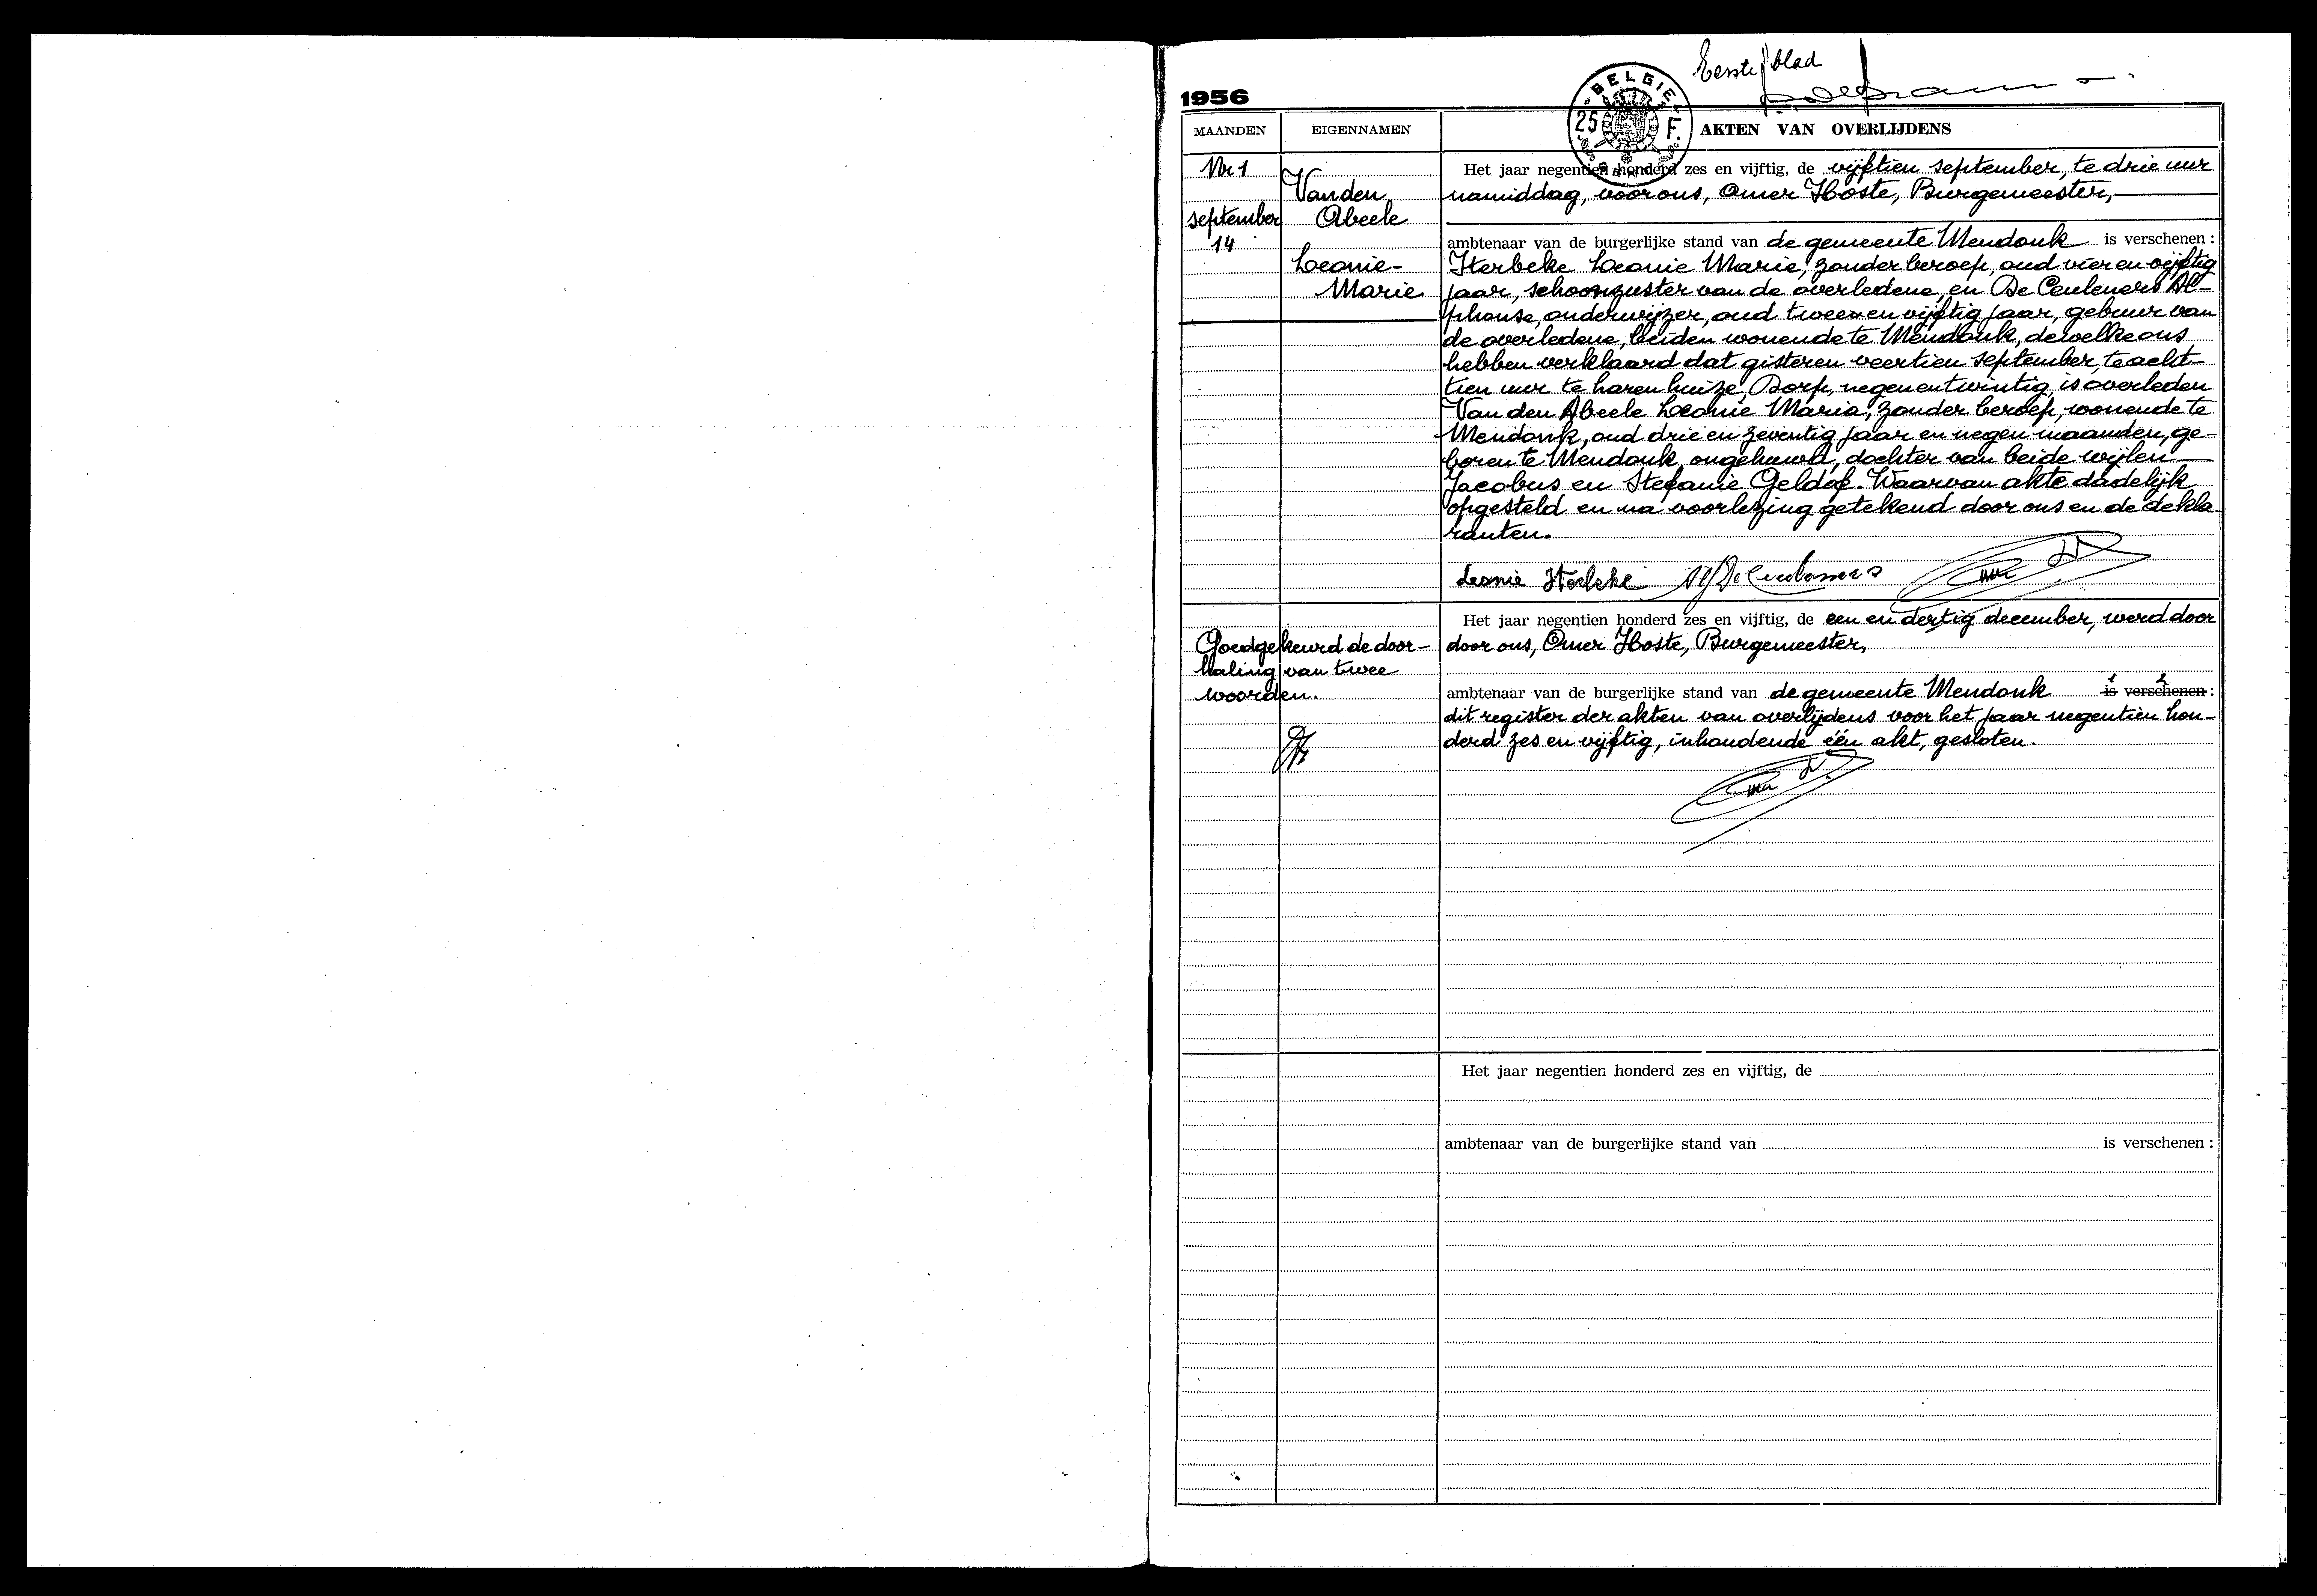 Eerste blad
1956
BELGIE
25 F.
MAANDEN EIGENNAMEN AKTEN VAN OVERLIJDENS
Nr 1
september
14
Vanden
Abeele
Leonie-
Marie
Het jaar negentien honderd zes en vijftig, de vijftien september, te drie uur
namiddag, voor ons, Omer Hoste, Burgemeester,
ambtenaar van de burgerlijke stand van de gemeente Mendonk is verschenen :
Sterbeke Leonie Marie, zonder beroep, oud vier en vijftig
jaar, schoonzuster van de overledene, en De Ceuleners Al-
phonse, onderwijzer, oud twee en vijftig jaar, gebuur van
de overledene, beiden wonende te Mendonk, dewelke ons
hebben verklaard dat gisteren veertien september, te acht-
tien uur te haren huize, Dorp, negenentwintig, is overleden
Van den Abeele Leonie Maria, zonder beroep, wonende te
Mendonk, oud drie en zeventig jaar en negen maanden, ge-
boren te Mendonk, ongehuwd, dochter van beide wijlen
Jacobus en Stefanie Geldof. Waarvan akte dadelijk
opgesteld en na voorlezing getekend door ons en de dekla-
ranten.
Leonie
Goedgekeurd de door-
haling van twee
woorden.
Het jaar negentien honderd zes en vijftig, de een en dertig december, werd door
door ons, Omer Hoste, Burgemeester,
ambtenaar van de burgerlijke stand van de gemeente Mendonk 1 is 2 verschenen :
dit register der akten van overlijdens voor het jaar negentien hon-
derd zes en vijftig, inhoudende één akt, gesloten.
Het jaar negentien honderd zes en vijftig, de
ambtenaar van de burgerlijke stand van is verschenen :